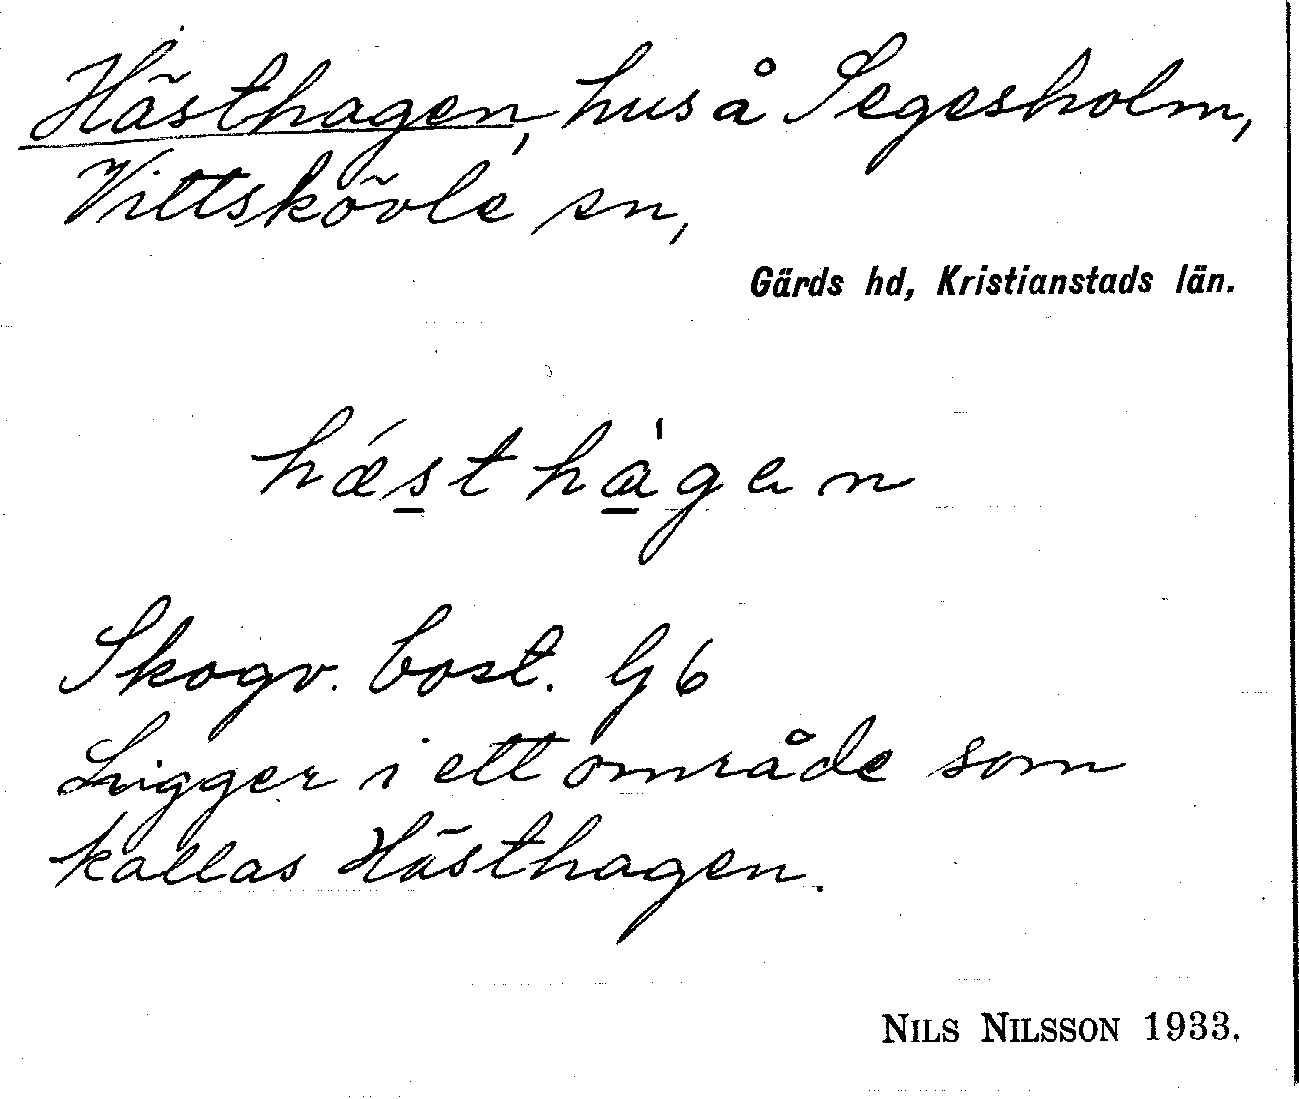 Hästhagen, hus å Segesholm,
Vittskövle sn,
Gärds hd, Kristianstads län.
hǽst hàgen
Skogv. bost. G6
Ligger i ett område som
kallas Hästhagen.
NILS NILSSON 1933.